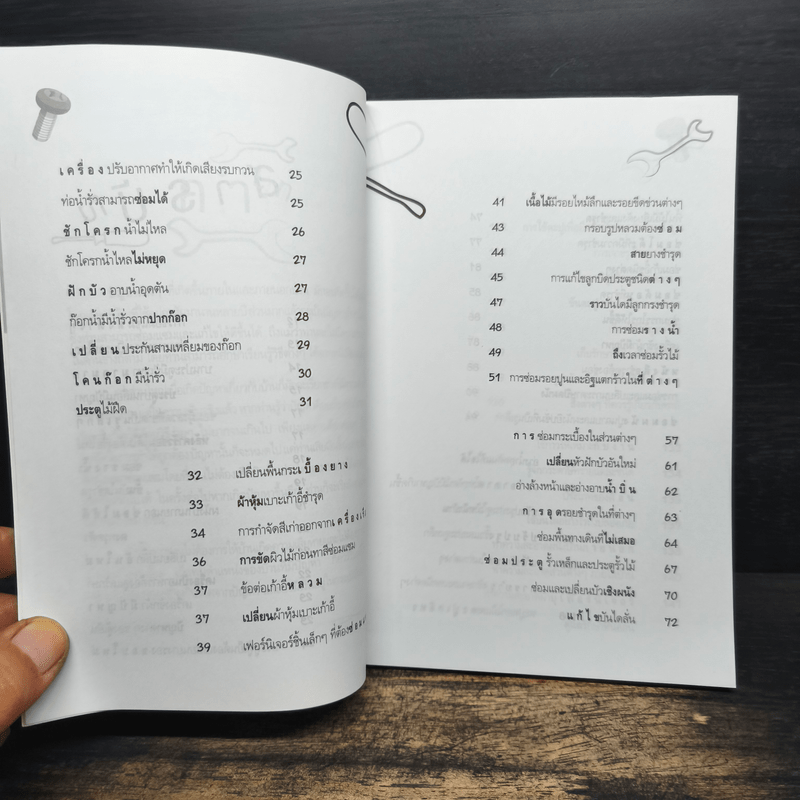 เครื่องปรับอากาศทำให้เกิดเสียงรบกวน 25
ท่อน้ำรั่วสามารถซ่อมได้ 25
ชักโครกน้ำไม่ไหล 26
ชักโครกน้ำไหลไม่หยุด 27
ฝักบัวอาบน้ำอุดตัน 27
ก๊อกน้ำมีน้ำรั่วจากปากก๊อก 28
เปลี่ยนประกันสามเหลี่ยมของก๊อก 29
โคนก๊อกมีน้ำรั่ว 30
ประตูไม้ฝืด 31
32 เปลี่ยนพื้นกระเบื้องยาง
33 ผ้าหุ้มเบาะเก้าอี้ชำรุด
34 การกำจัดสีเก่าออกจาก
36 การขัดผิวไม้ก่อนทาสีซ่อมแซม
37 ข้อต่อเก้าอี้หลวม
37 เปลี่ยนผ้าหุ้มเบาะเก้าอี้
39 เฟอร์นิเจอร์ชิ้นเล็กๆ ที่ต้องซ่อม
41 เนื้อไม้มีรอยไหม้ลึกและรอยขีดข่วนต่างๆ
43 กรอบรูปหลวมต้องซ่อม
44 สายยางชำรุด
45 การแก้ไขลูกบิดประตูชนิดต่างๆ
47 ราวบันไดมีลูกกรงชำรุด
48 การซ่อมรางน้ำ
49 ถึงเวลาซ่อมรั้วไม้
51 การซ่อมรอยปูนและอิฐแตกร้าวในที่ต่างๆ
การซ่อมกระเบื้องในส่วนต่างๆ 57
เปลี่ยนหัวฝักบัวอันใหม่ 61
อ่างล้างหน้าและอ่างอาบน้ำบิ่น 62
การอุดรอยชำรุดในที่ต่างๆ 63
ซ่อมพื้นทางเดินที่ไม่เสมอ 64
ซ่อมประตูรั้วเหล็กและประตูรั้วไม้ 67
ซ่อมและเปลี่ยนบัวเชิงผนัง 70
แก้ไขบันไดลั่น 72